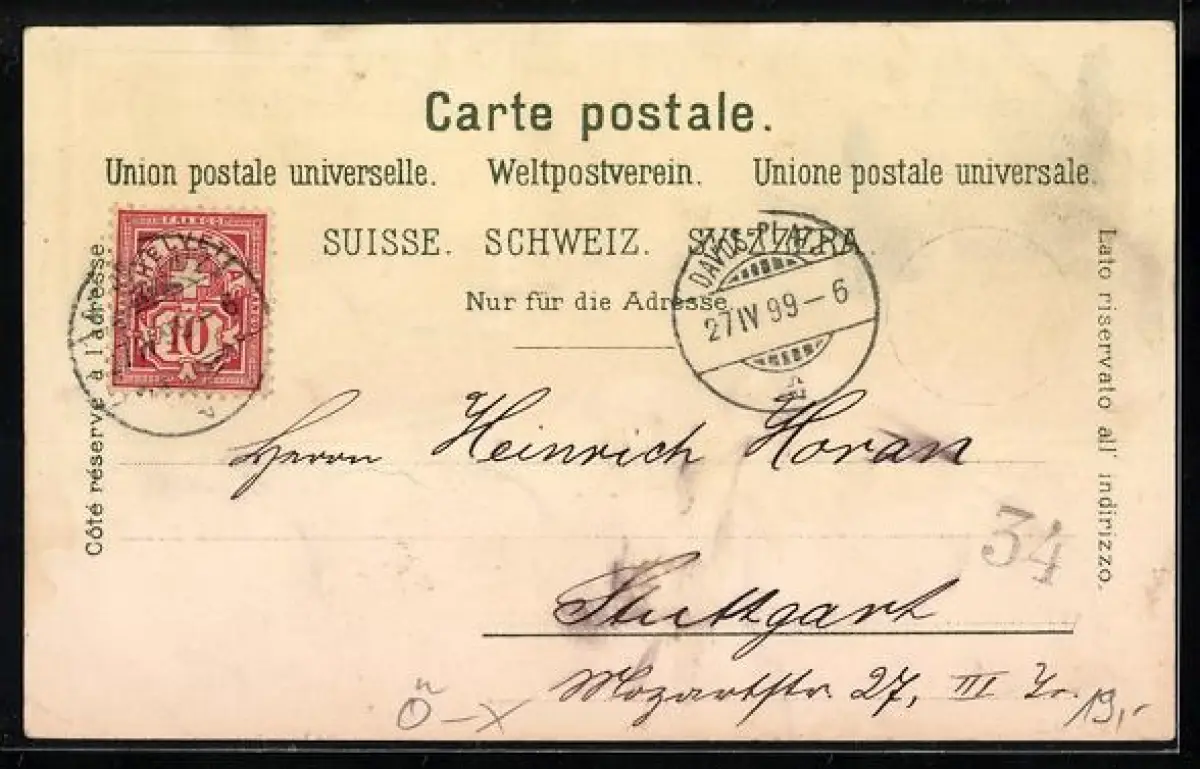 Carte postale.
Union postale universelle. Weltpostverein. Unione postale universale.
SUISSE. SCHWEIZ. SVIZZERA.
Nur für die Adresse.
Côté réservé à l'adresse
Lato riservato all' indirizzo.
FRANCO
HELVETIA
10
DAVOS-PLATZ
27 IV 99–6
Herrn Heinrich Horan
34
Stuttgart
Mozartstr. 27, III
Ö – X
19,-